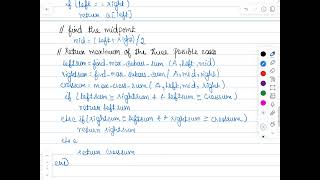 if (left == right)
return a[left]
// find the midpoint
mid = (left + right)/2
// Return maximum of the three possible cases
leftsum = find-max-subarr-sum (A, left, mid)
rightsum = find-max-subarr-sum (A, mid, right)
crosssum = max-crossing-sum (A, left, mid, right)
if (leftsum ≥ rightsum && leftsum ≥ crosssum)
return leftsum
else if (rightsum ≥ leftsum && rightsum ≥ crosssum)
return rightsum
else
return crosssum
end